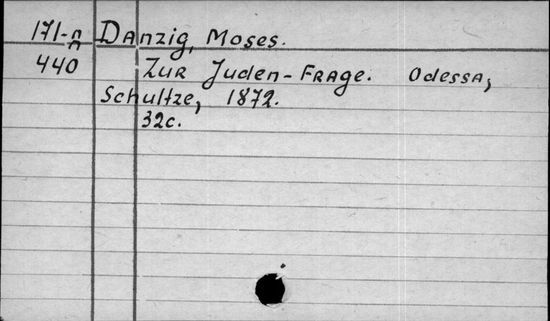 171-п/п Danzig, Moses.
440 Zur Juden-Frage. Odessa,
Schultze, 1872.
32с.